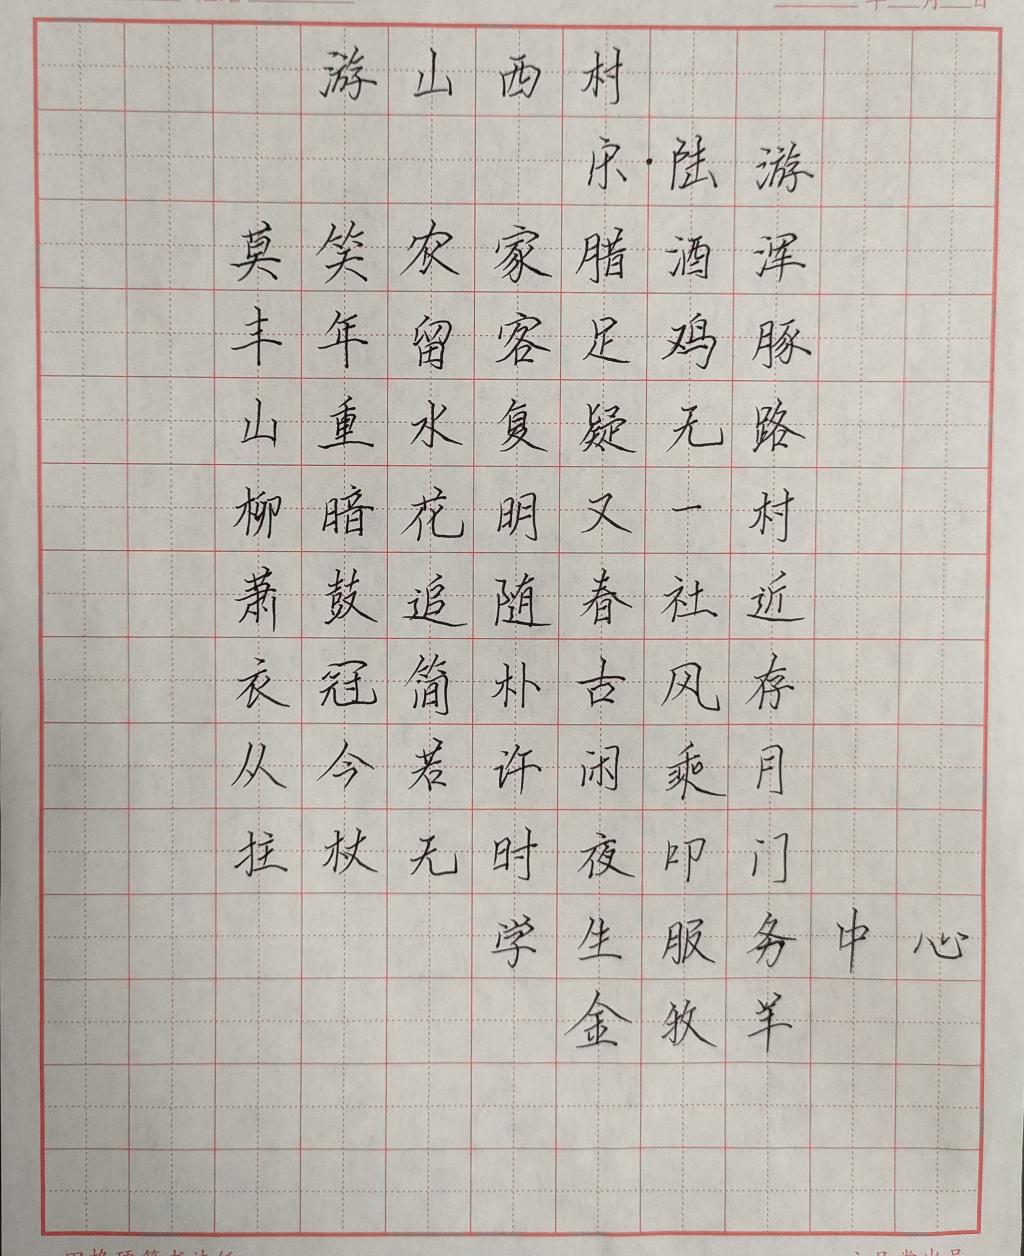 年 月 日
游山西村
宋·陆游
莫笑农家腊酒浑
丰年留客足鸡豚
山重水复疑无路
柳暗花明又一村
萧鼓追随春社近
衣冠简朴古风存
从今若许闲乘月
拄杖无时夜叩门
学生服务中心
金牧羊